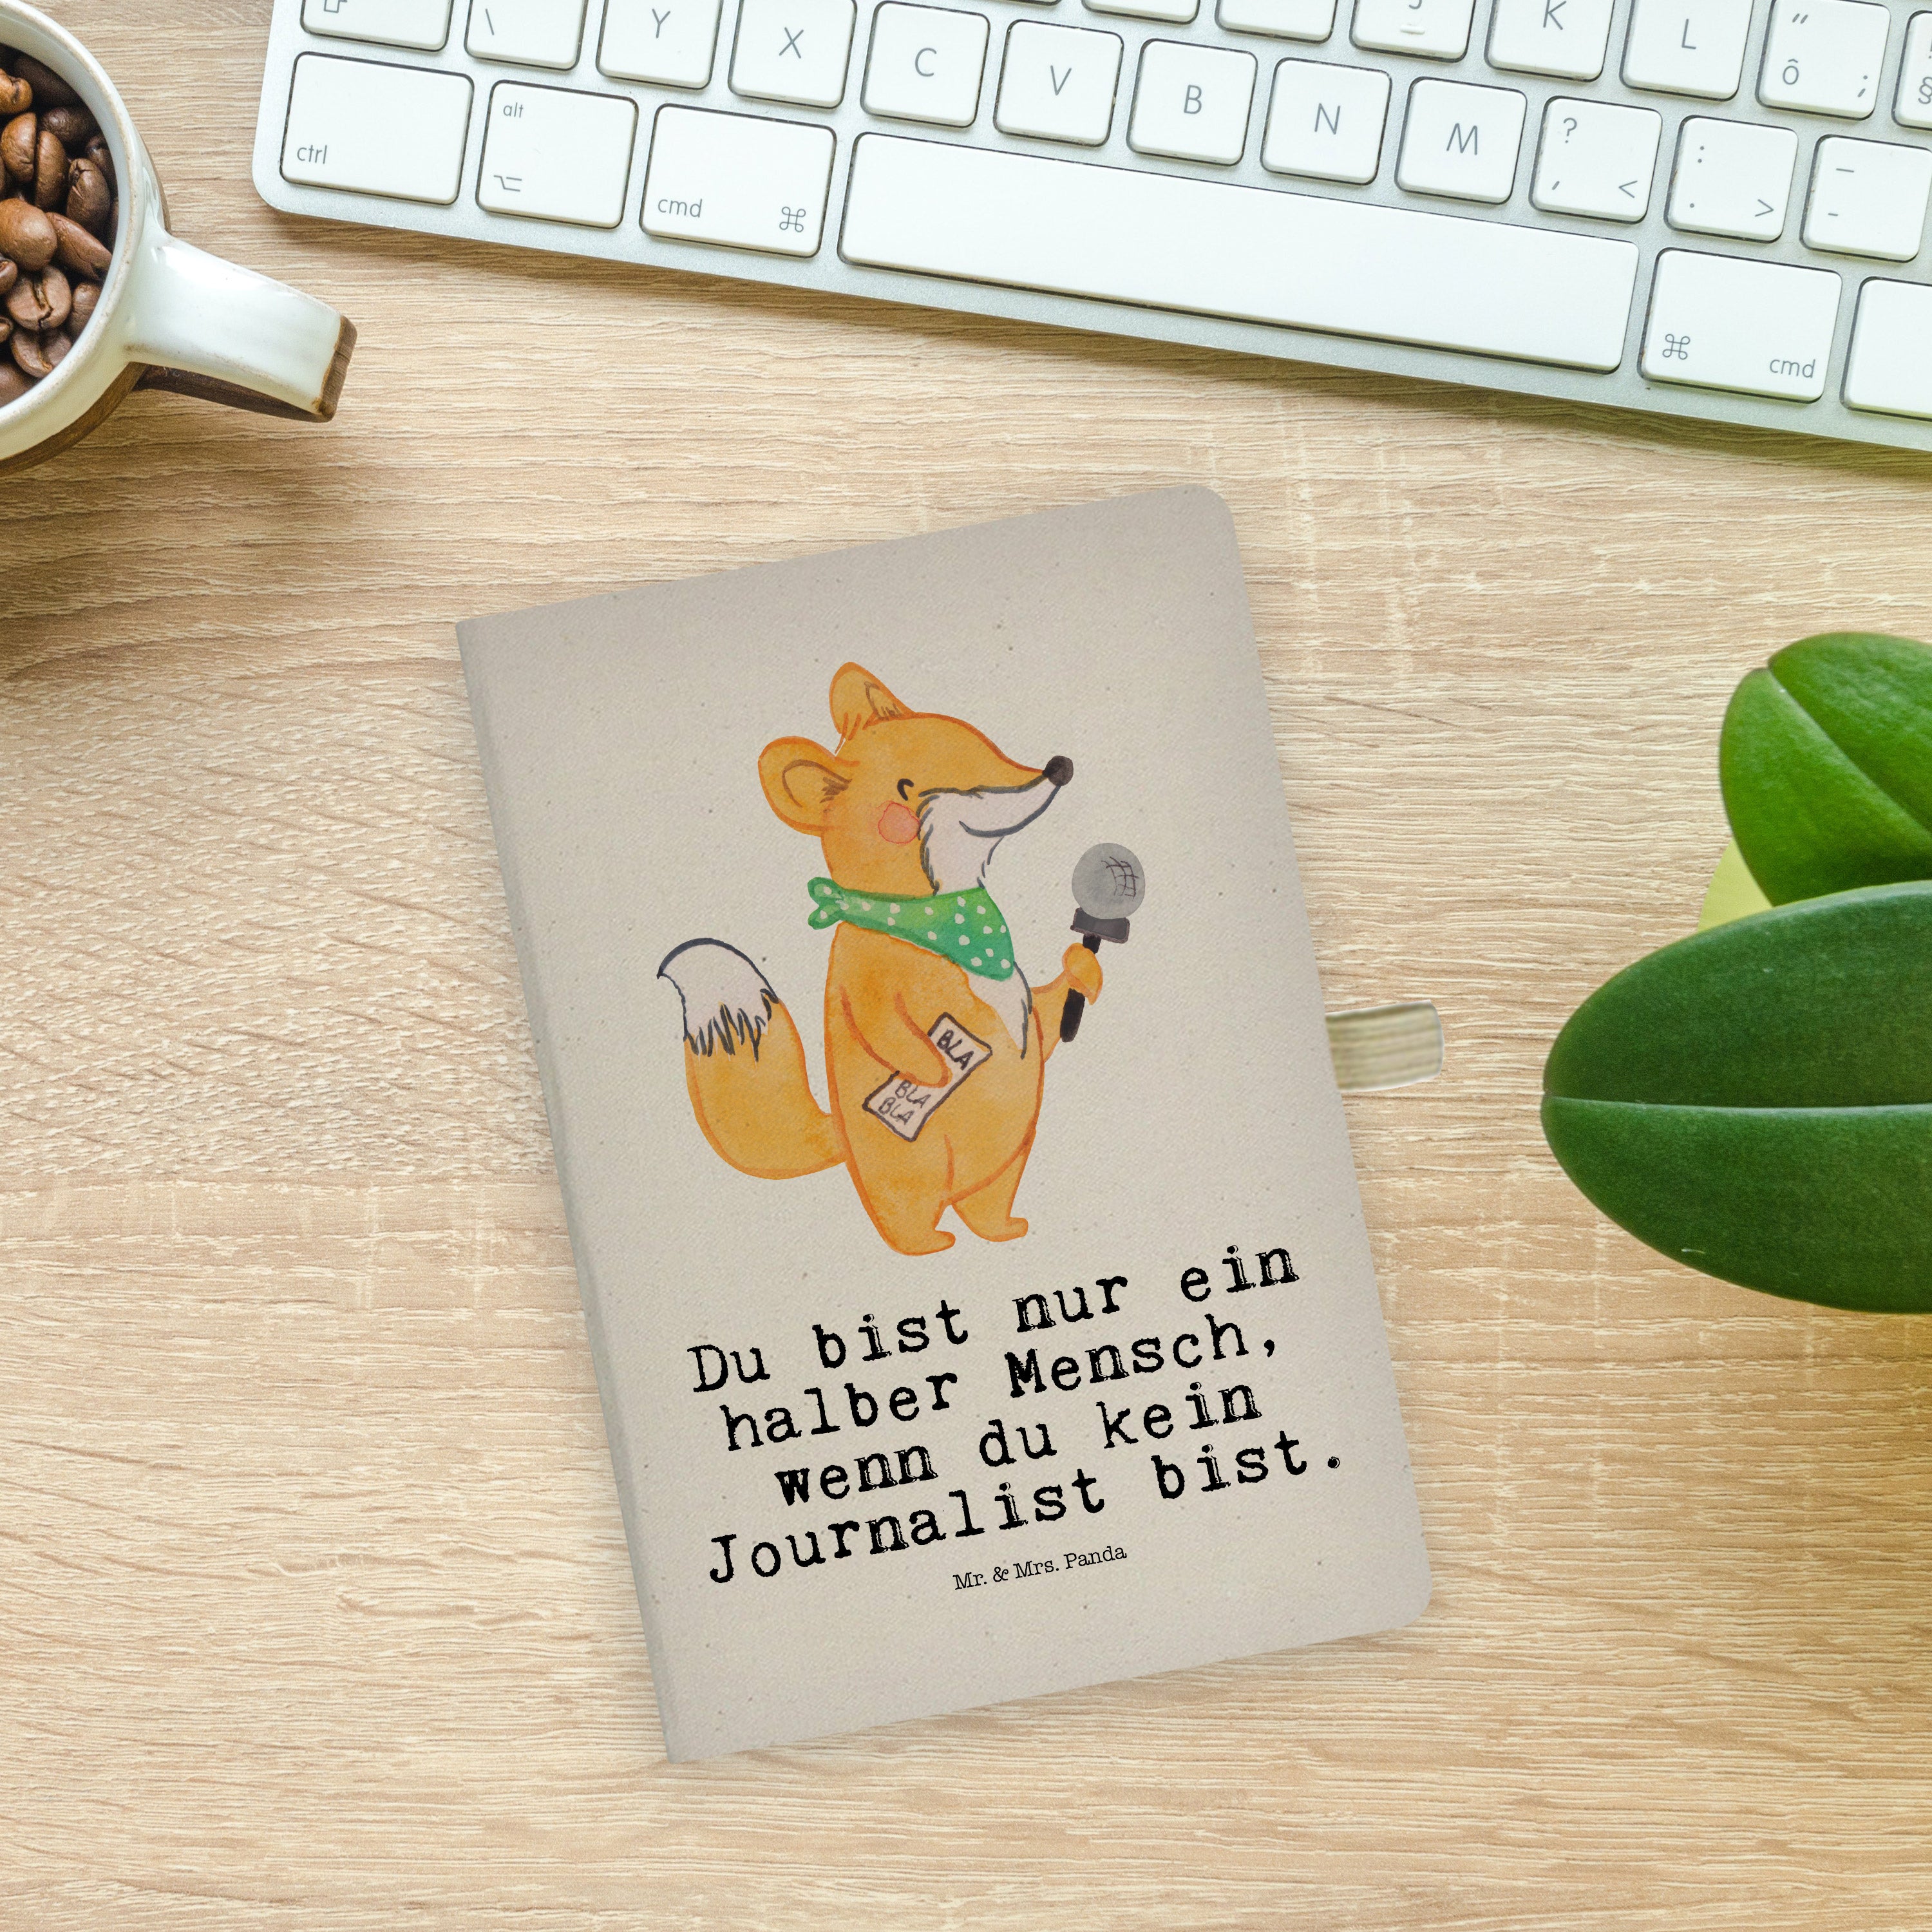 \ Y X C V B N M J K L “ ô ;
ctrl
alt
cmd ⌘
? , <
: . >
_ -
⌘ cmd
BLA
BLA
BLA
Du bist nur ein
halber Mensch,
wenn du kein
Journalist bist.
Mr. & Mrs. Panda